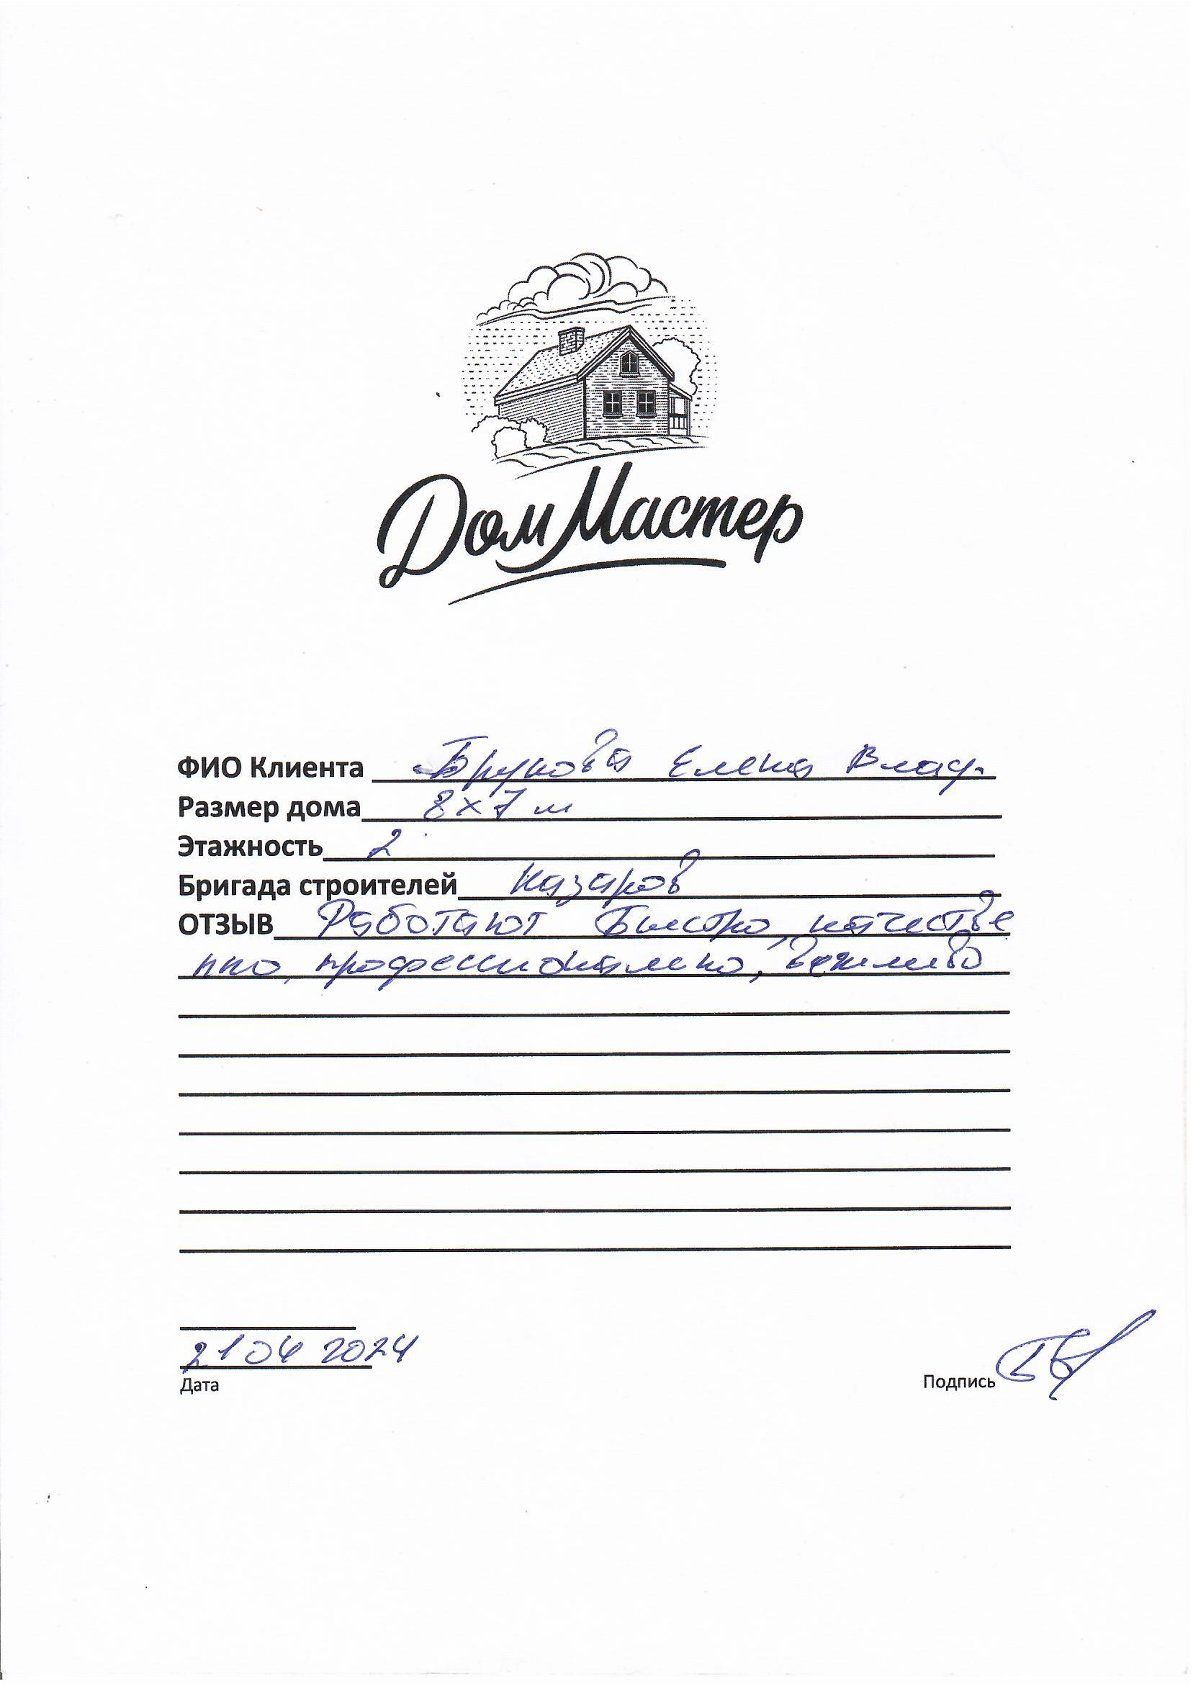 Дом Мастер
ФИО Клиента Брукова Елена Влад.
Размер дома 8х7 м
Этажность 2
Бригада строителей Назаров
ОТЗЫВ Работают быстро, качестве
нно, профессионально, вежливо
21 04 2024
Дата Подпись